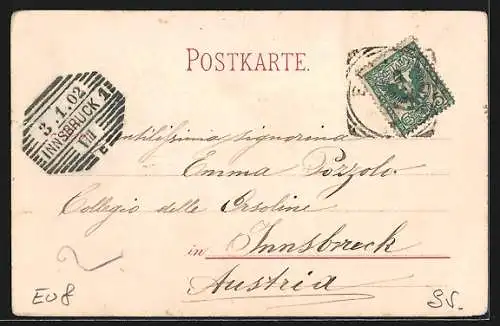 POSTKARTE.
3.1.02
INNSBRUCK 1
VII
Gentilissima signorina
Emma Pozzolo
Collegio delle Orsoline
in Innsbruck
Austria
2
EU8